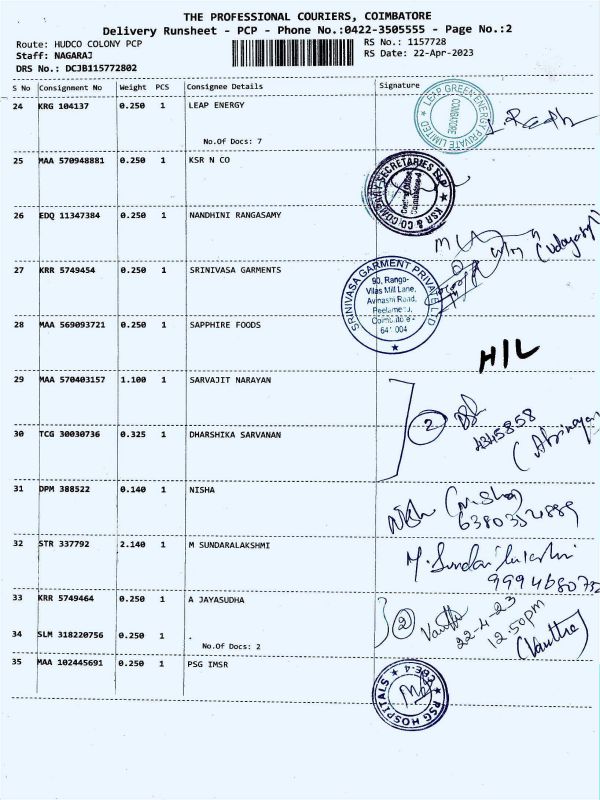 THE PROFESSIONAL COURIERS, COIMBATORE
Delivery Runsheet - PCP - Phone No.:0422-3505555 - Page No.:2
Route: HUDCO COLONY PCP RS No.: 1157728
Staff: NAGARAJ RS Date: 22-Apr-2023
DRS No.: DCJB115772802
S No Consignment No Weight PCS Consignee Details Signature
24 KRG 104137 0.250 1 LEAP ENERGY
LEAP GREEN ENERGY PRIVATE LIMITED
COIMBATORE
No.Of Docs: 7
25 MAA 570948881 0.250 1 KSR N CO
KSR & CO COMPANY SECRETARIES LLP
26 EDQ 11347384 0.250 1 NANDHINI RANGASAMY
27 KRR 5749454 0.250 1 SRINIVASA GARMENTS
SRINIVASA GARMENT PRIVATE LTD
90, Rango-
Vilas Mill Lane,
Avinashi Road,
Peelamedu,
Coimbatore -
641 004
28 MAA 569093721 0.250 1 SAPPHIRE FOODS
H/L
29 MAA 570403157 1.100 1 SARVAJIT NARAYAN
2
30 TCG 30030736 0.325 1 DHARSHIKA SARVANAN
31 DPM 388522 0.140 1 NISHA
(Nisha)
32 STR 337792 2.140 1 M SUNDARALAKSHMI
M. Sundaralakshmi
33 KRR 5749464 0.250 1 A JAYASUDHA
2
22-4-23
12.50pm
34 SLM 318220756 0.250 1 .
No.Of Docs: 2
35 MAA 102445691 0.250 1 PSG IMSR
PSG HOSPITALS CBE-4